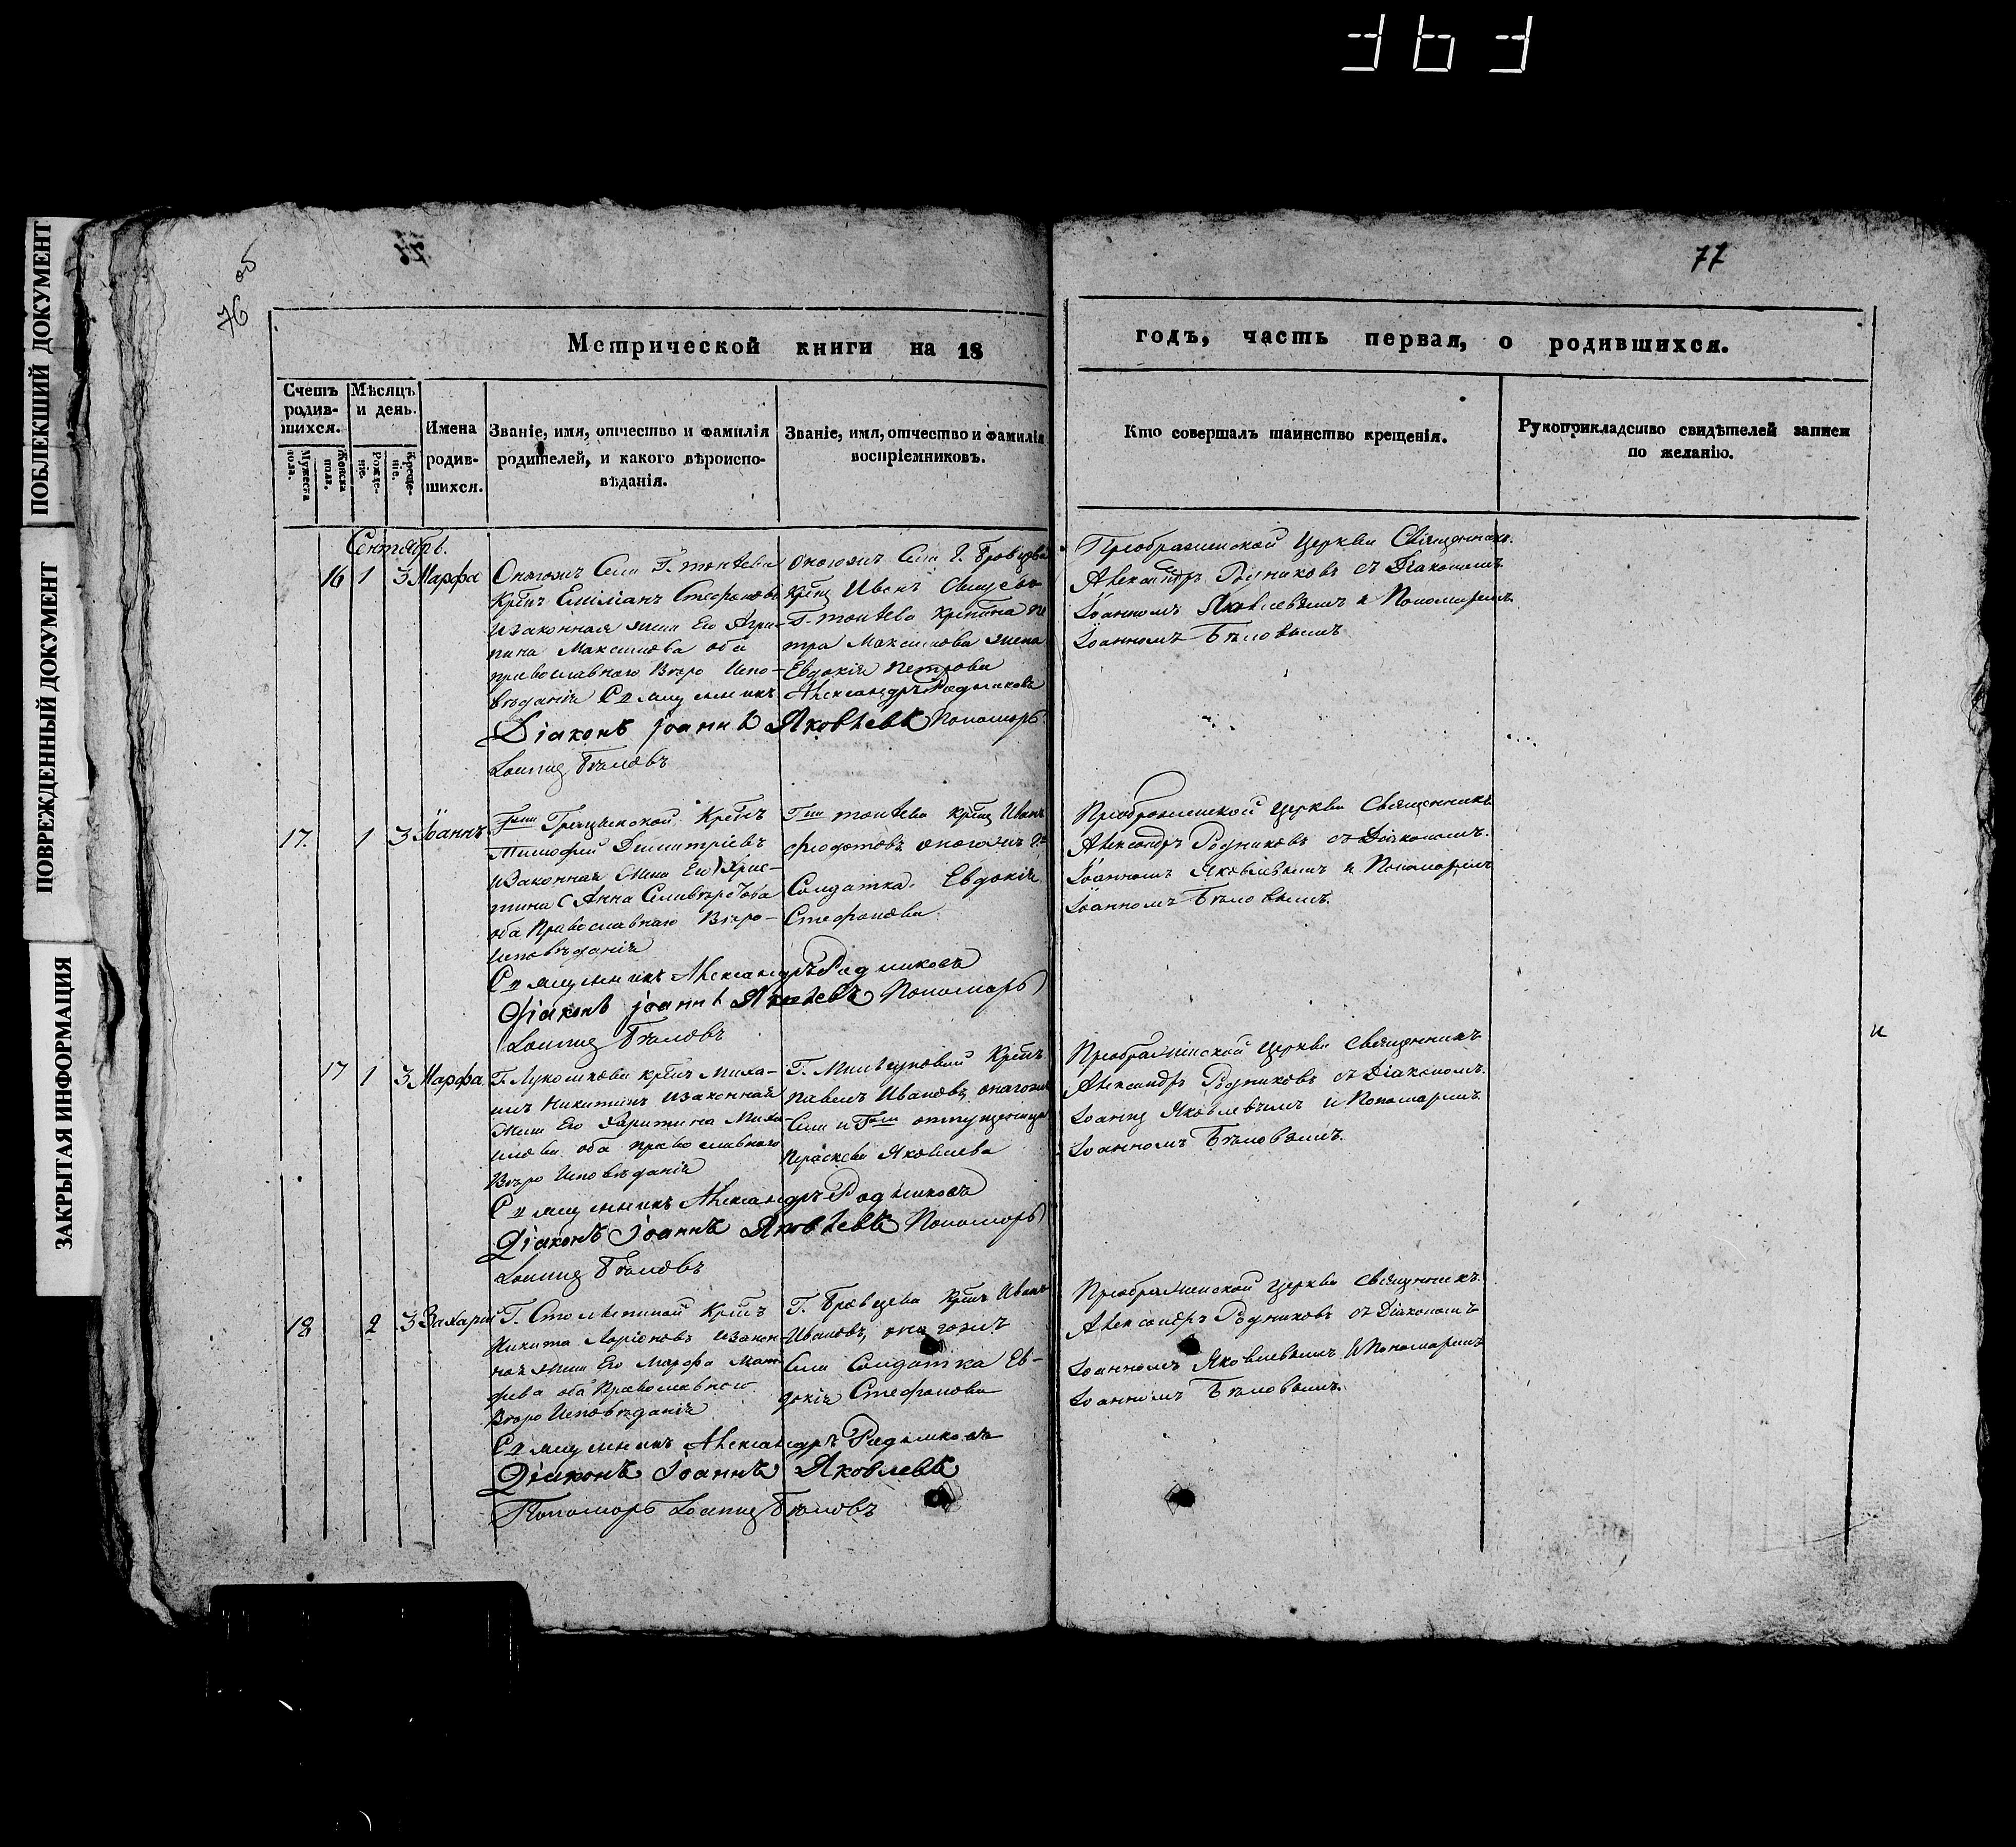 ПОБЛЕКШИЙ ДОКУМЕНТ
ПОВРЕЖДЕННЫЙ ДОКУМЕНТ
ЗАКРЫТАЯ ИНФОРМАЦИЯ
76 об
77
Метрической книги на 18
годъ, часть первая, о родившихся.
Счетъ родив-шихся.
Мужеска пола.
Женска пола.
Мѣсяцъ и день.
Рожде-ніе.
Креще-ніе.
Имена родив-шихся.
Званіе, имя, отчество и фамилія
родителей, и какого вѣроиспо-
вѣданія.
Званіе, имя, отчество и фамилія
воспріемниковъ.
Кто совершалъ таинство крещенія.
Рукоприкладство свидѣтелей записи
по желанію.
Сентябрь.
16 1 3 Марфа
Онагожъ Села
Емиліанъ Стефановъ
изаконная жена Его Агри-
пина Максимова оба
православнаго Вѣро Испо-
вѣданія Священникъ Александръ Родниковъ
Діаконъ Іоаннъ Яковлевъ Пономарь
Іоаннъ Бѣловъ
онагожъ Села Г. Бровцева
Иванъ
Петра Максимова жена
Евдокія Петрова
Преображенской Церкви Священникъ
Александръ Родниковъ съ Діакономъ
Іоанномъ Яковлевымъ и Пономаремъ
Іоанномъ Бѣловымъ
17. 1 3 Іоаннъ
Тимофей Димитріевъ
изаконная жена Его Хрис-
тина
оба Православнаго Вѣро-
исповѣданія
Священникъ Александръ Родниковъ
Діаконъ Іоаннъ Яковлевъ Пономарь
Іоаннъ Бѣловъ
Иванъ
Федотовъ онагожъ
Солдатка Евдокія
Стефанова
Преображенской Церкви Священникъ
Александръ Родниковъ съ Діакономъ.
Іоанномъ Яковлевымъ и Пономаремъ
Іоанномъ Бѣловымъ.
17 1 3 Марфа
Г. Лукошкова Миха-
илъ Никитинъ изаконная
жена Его Харитина Миха-
илова оба православнаго
Вѣро Исповѣданія
Священникъ Александръ Родниковъ
Діаконъ Іоаннъ Яковлевъ Пономарь
Іоаннъ Бѣловъ
Павелъ Ивановъ, онагожъ
Села
Параскева Яковлева
Преображенской Церкви Священникъ
Александръ Родниковъ съ Діакономъ.
Яковлевымъ и Пономаремъ
Іоанномъ Бѣловымъ.
18 2 3 Захарій
Никита Ларіоновъ изакон-
ная жена Его Марфа Мат-
фѣева оба Православнаго
Вѣро Исповѣданія
Священникъ Александръ Родниковъ
Діаконъ Іоаннъ Яковлевъ
Пономарь Іоаннъ Бѣловъ
Г. Бровцева Иванъ
Ивановъ, онагожъ
Села Солдатка Ев-
докія Стефанова
Преображенской Церкви Священникъ.
Александръ Родниковъ съ Діакономъ
Іоанномъ Яковлевымъ и Пономаремъ
Іоанномъ Бѣловымъ.